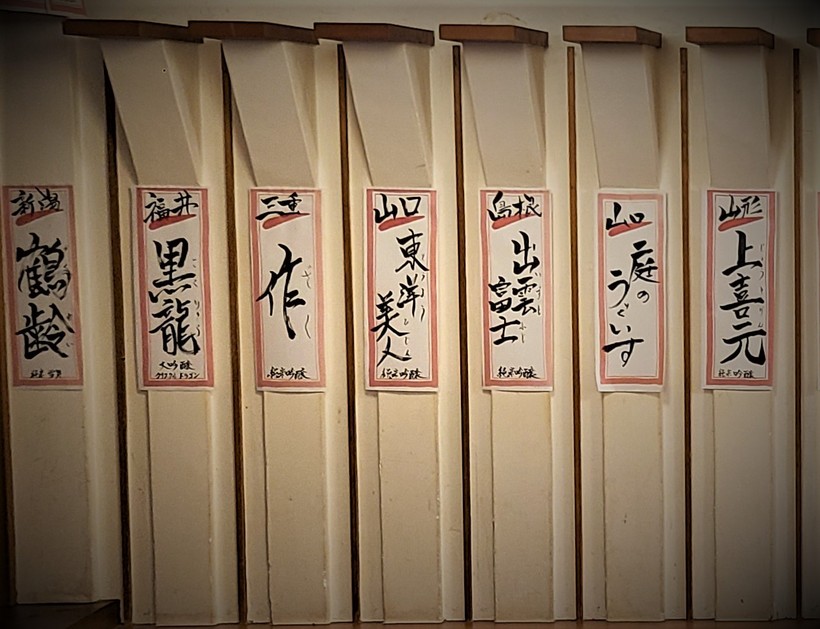 新潟
鶴齢
福井
黒龍
こくりゅう
大吟醸
クリスタルドラゴン
三重
作
純米吟醸
山口
東洋
美人
純米吟醸
島根
出雲
富士
純米吟醸
山口
庭の
うぐいす
山形
上喜元
純米吟醸